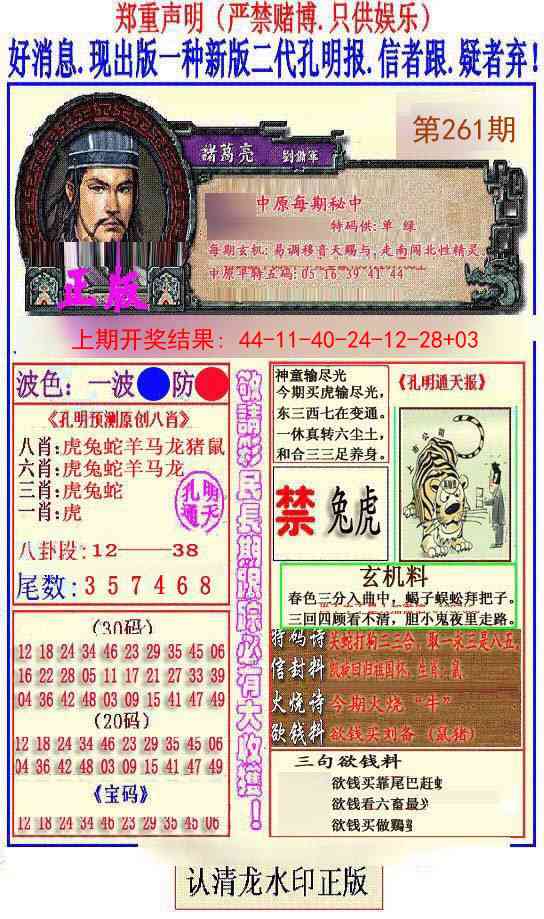 郑重声明（严禁赌博.只供娱乐）
好消息.现出版一种新版二代孔明报.信者跟.疑者弃！
第261期
諸葛亮 劉備軍
中原每期秘中
特码供：单 绿
每期玄机：易调移音天赐与，走南闯北性精灵
中原平特五码：05 16 39 41 44
正版
上期开奖结果：44-11-40-24-12-28+03
波色：一波 防
《孔明预测原创八肖》
八肖：虎兔蛇羊马龙猪鼠
六肖：虎兔蛇羊马龙
三肖：虎兔蛇
一肖：虎
孔明
通天
八卦段：12——38
尾数：357468
(30码)
12 18 24 34 46 23 29 35 45 06
16 22 28 05 11 17 21 27 33 39
04 36 42 48 03 09 15 41 47 49
(20码)
12 18 24 34 46 23 29 35 45 06
04 36 42 48 03 09 15 41 47 49
《宝码》
12 18 24 34 46 23 29 35 45 06
敬請彩民長期跟踪必有大收獲！
神童输尽光
今期买虎输尽光，
东三西七在变通。
一休真转六尘土，
和合三三足养身。
《孔明通天报》
上市公司
禁 兔虎
玄机料
春色三分入曲中，蝎子蜈蚣拜把子。
三回四顾看不清，胆小鬼夜里走路。
特码诗 打狗三三合，取一求三是八五
信封料 生肖，鼠
火烧诗 今期火烧“牛”
欲钱料 欲钱买刘备（鼠猪）
三句欲钱料
欲钱买靠尾巴赶
欲钱看六畜最
欲钱买做鷄
认清龙水印正版